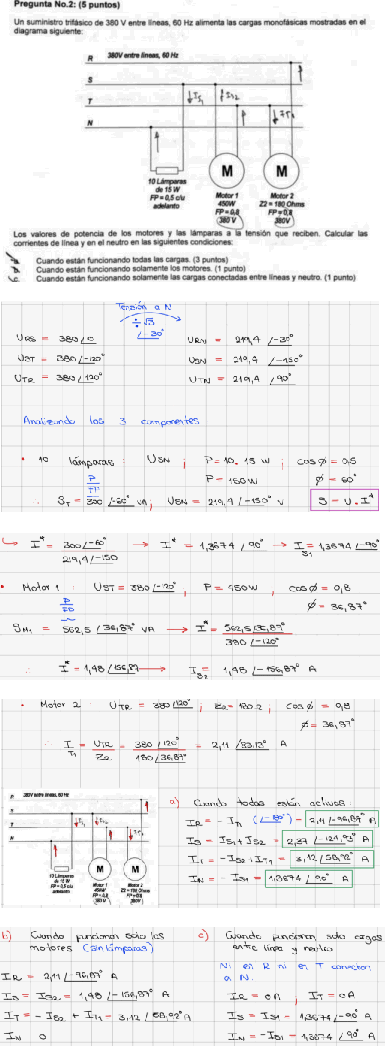 Pregunta No.2: (5 puntos)
Un suministro trifásico de 380 V entre líneas, 60 Hz alimenta las cargas monofásicas mostradas en el
diagrama siguiente:
R 380V entre líneas, 60 Hz
S
T
N
I_S1 I_S2 I_T1
M M
10 Lámparas
de 15 W
FP = 0,5 c/u
adelanto
Motor 1
450W
FP = 0,8
380 V
Motor 2
Z2 = 180 Ohms
FP = 0,8
380V
Los valores de potencia de los motores y las lámparas a la tensión que reciben. Calcular las
corrientes de línea y en el neutro en las siguientes condiciones:
a. Cuando están funcionando todas las cargas. (3 puntos)
b. Cuando están funcionando solamente los motores. (1 punto)
c. Cuando están funcionando solamente las cargas conectadas entre líneas y neutro. (1 punto)
Tensión a N
÷√3
/-30°
U_RS = 380/0 U_RN = 219,4 /-30°
U_ST = 380/-120° U_SN = 219,4 /-150°
U_TR = 380/120° U_TN = 219,4 /90°
Analizando los 3 componentes
• 10 lámparas: U_SN ; P=10. 15 W ; cos φ = 0,5
P = 150 W φ = 60°
P
FP
S_T = 300 /-60° VA ; U_SN = 219,4 /-150° V S = U . I*
I* = 300/-60° → I* = 1,3674 / 90° → I_S1 = 1,3674 /-90°
219,4/-150
• Motor 1 : U_ST = 380 /-120° , P = 450W , cos φ = 0,8
φ = 36,87°
S_M1 = 562,5 / 36,87° VA → I* = 562,5/36,87°
380 /-120°
∴ I* = 1,48 /156,87 → I_S2 = 1,48 /-156,87° A
• Motor 2 : U_TR = 380/120° ; Z2= 180 Ω ; cos φ = 0,8
φ = 36,87°
∴ I_T1 = U_TR = 380 /120° = 2,11 /83,13° A
Z2 180/36,87°
R 380V entre líneas, 60 Hz
S
T
N
I_S1 I_S2 I_T1
M M
10 Lámparas
de 15 W
FP = 0,5 c/u
adelanto
Motor 1
450W
FP = 0,8
380 V
Motor 2
Z2 = 180 Ohms
FP = 0,8
380V
a) Cuando todas están activas
I_R = - I_T1 (/-180°) = 2,11 /-96,87° A
I_S = I_S1 + I_S2 = 2,37 /-124,93° A
I_T = -I_S2 + I_T1 = 3,12 /58,92° A
I_N = - I_S1 = 1,3674 / 90° A
b) Cuando funcionan solo los
motores (sin lámparas)
I_R = 2,11 /-96,87° A
I_S = I_S2 = 1,48 /-156,87° A
I_T = - I_S2 + I_T1 = 3,12 / 58,92° A
I_N 0
c) Cuando funcionan solo cargas
entre línea y neutro
Ni en R ni en T conectan
a N.
I_R = 0A ; I_T = 0A
I_S = I_S1 = 1,3674/-90° A
I_N = -I_S1 = 1,3674 / 90° A